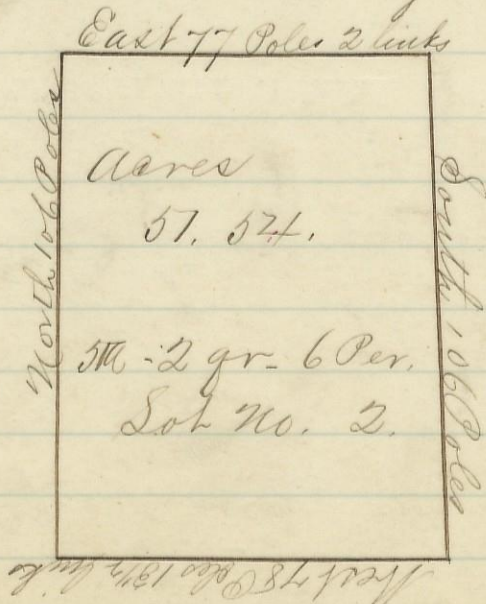 East 77 Poles 2 links
North 106 Poles
Acres
51. 54.
51A - 2 qr - 6 Per.
Lot No. 2.
South 106 Poles
West 78 Poles 13½ links